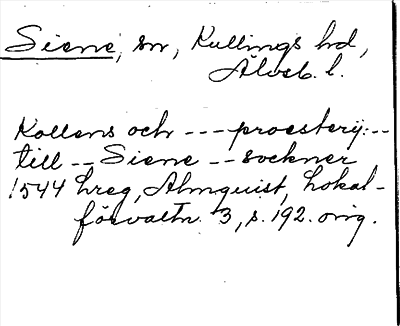 Siene, sn, Kullings hd,
Älvsb. l.
Kollens och --- proesterij:--
till -- Siene -- sockner
1544 hreg, Almquist, Lokal-
förvaltn. 3, s. 192. orig.